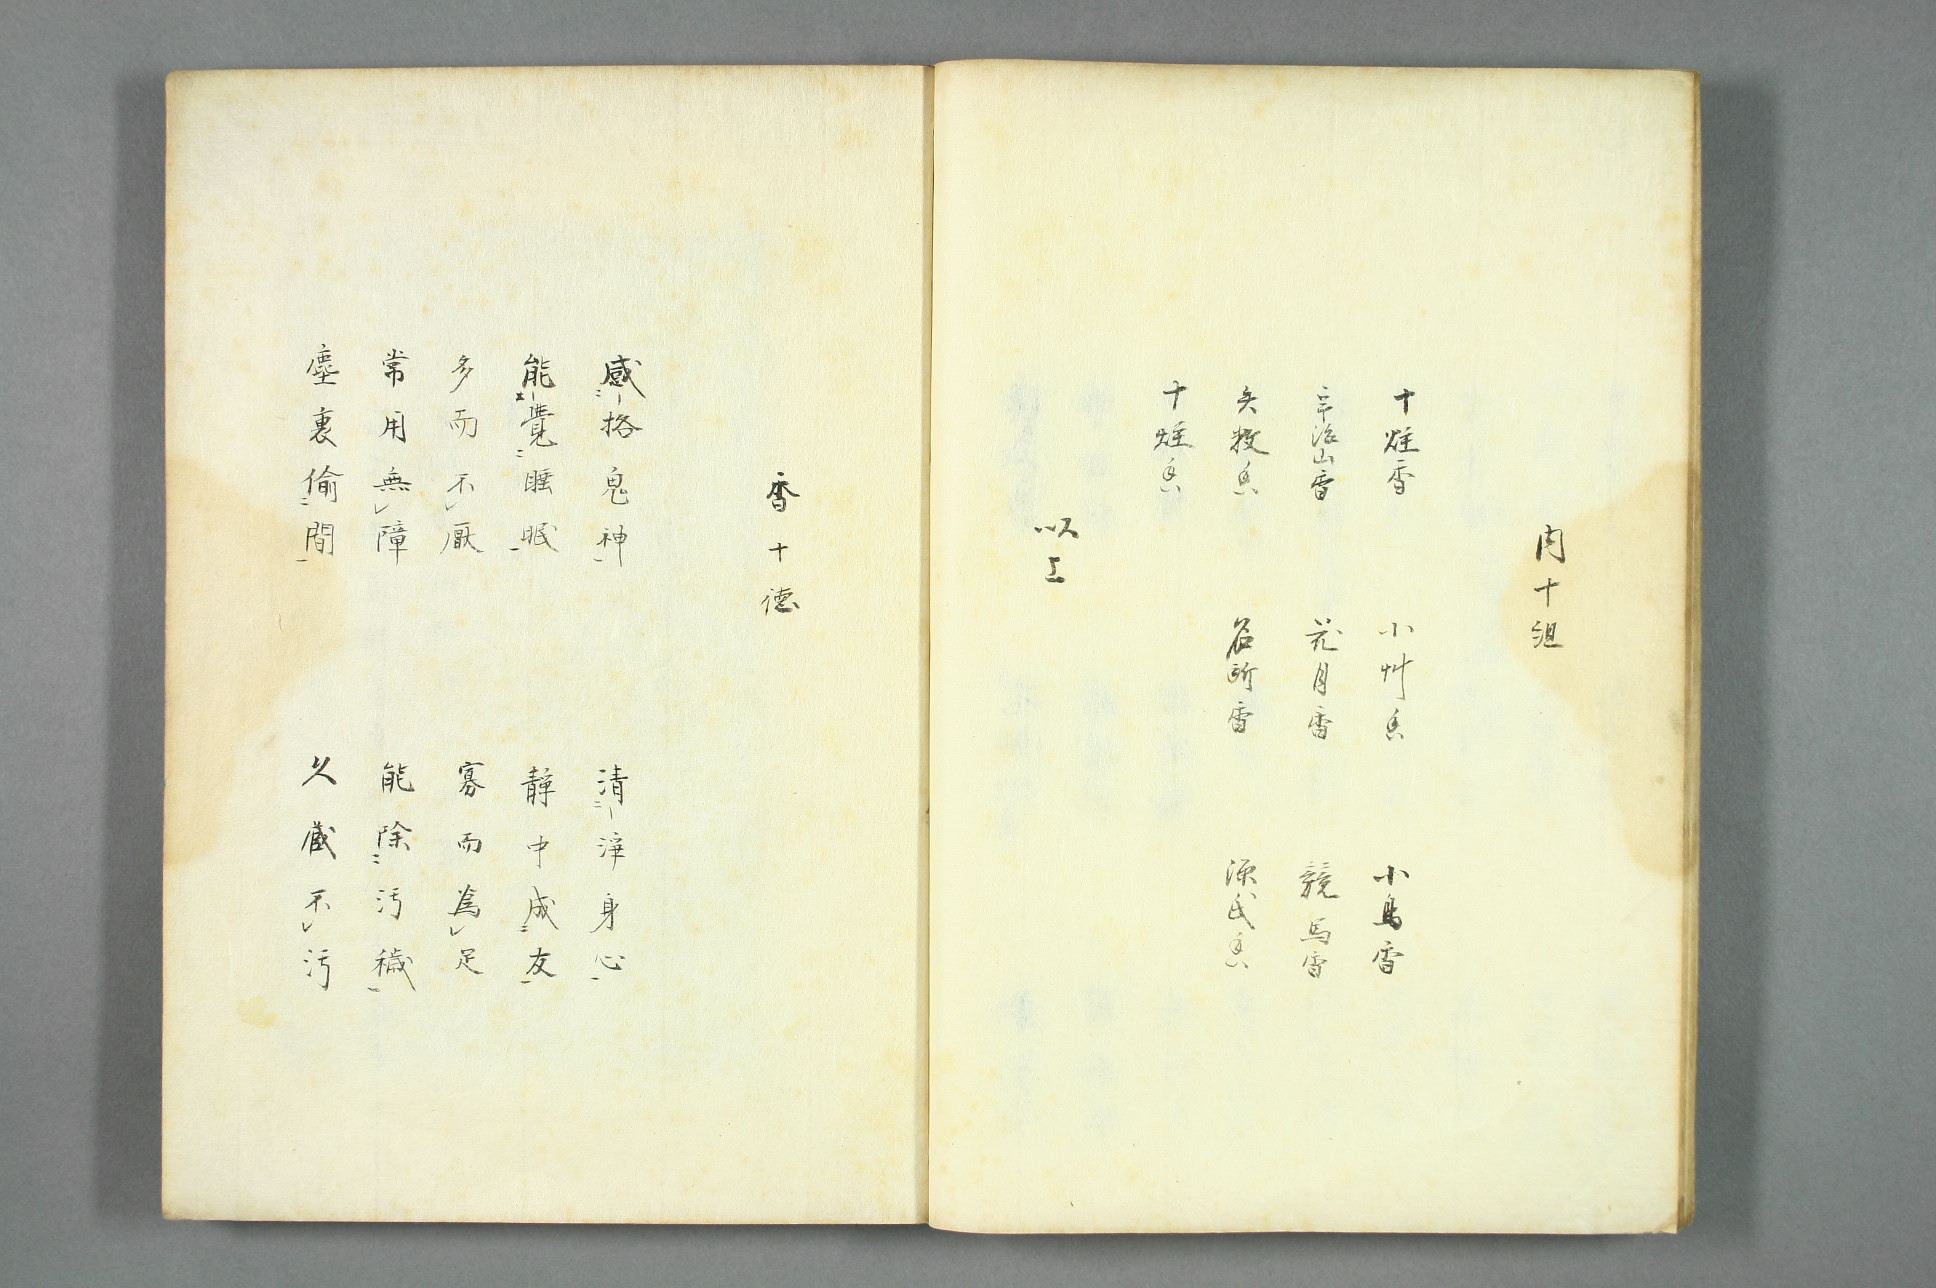 内十組
十炷香　小艸香　小鳥香
宇治山香　花月香　競馬香
矢数香　名所香　源氏香
十炷香
以上
香十徳
感格鬼神　清淨身心
能覺睡眠　静中成友
多而不厭　寡而為足
常用無障　能除汚穢
塵裏偸間　久蔵不汚